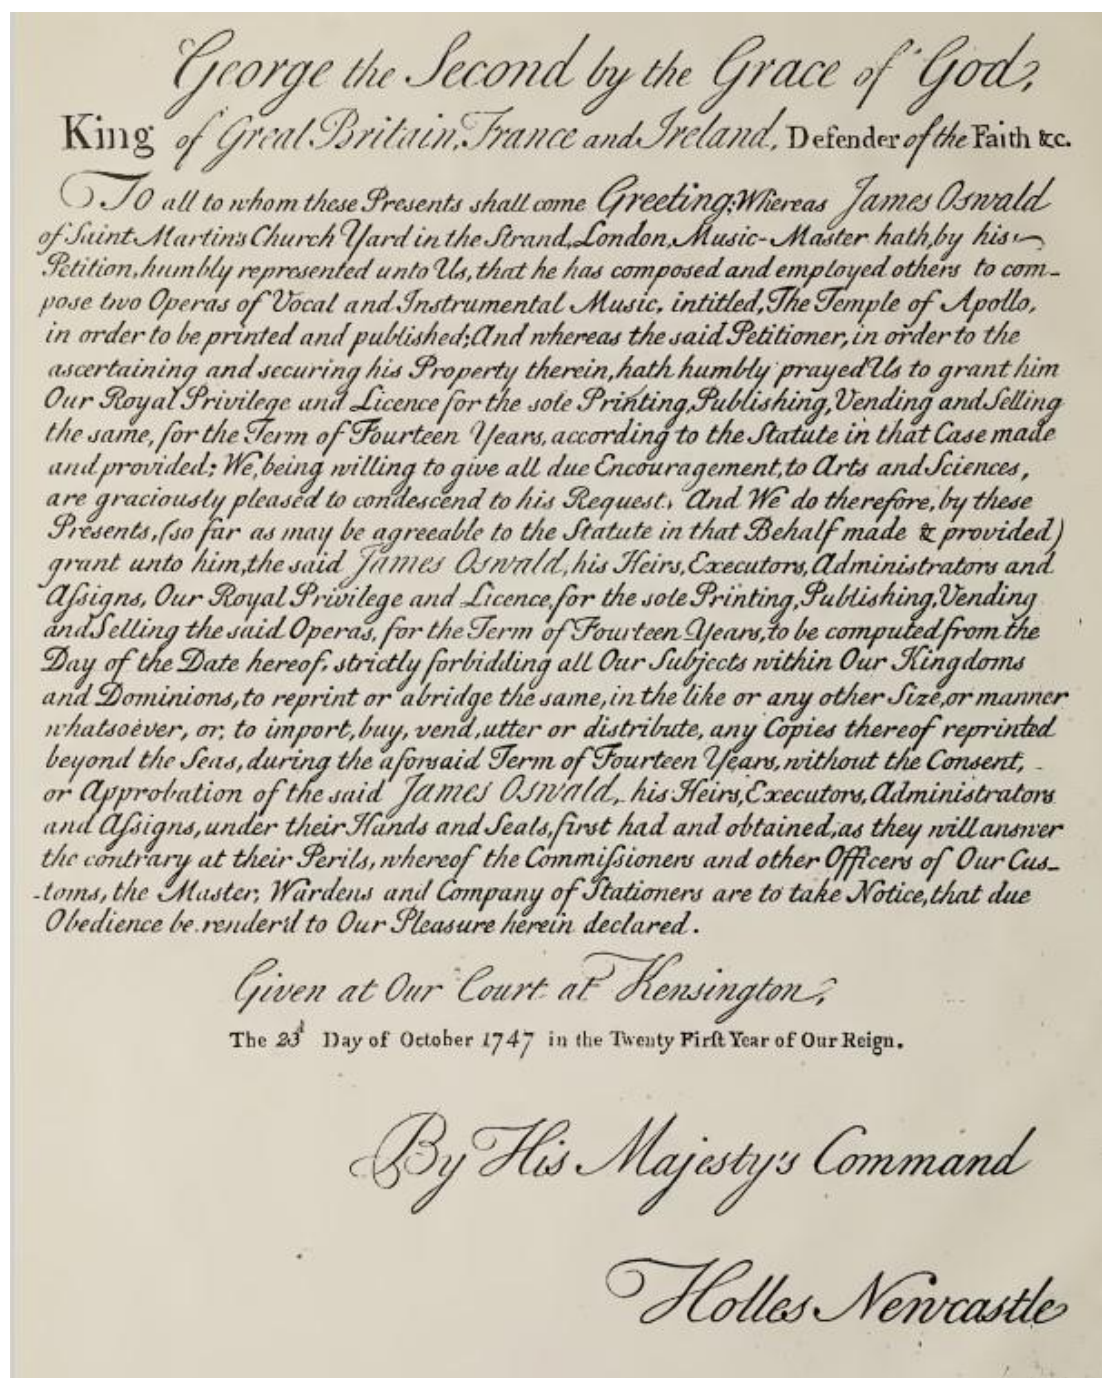 George the Second by the Grace of God,
King of Great Britain, France and Ireland, Defender of the Faith &c.
To all to whom these Presents shall come Greeting; Whereas James Oswald
of Saint Martin's Church Yard in the Strand, London, Music-Master hath, by his
Petition, humbly represented unto Us, that he has composed and employed others to com-
pose two Operas of Vocal and Instrumental Music, intitled, The Temple of Apollo,
in order to be printed and published; And whereas the said Petitioner, in order to the
ascertaining and securing his Property therein, hath humbly prayed Us to grant him
Our Royal Privilege and Licence for the sole Printing, Publishing, Vending and Selling
the same, for the Term of Fourteen Years, according to the Statute in that Case made
and provided: We, being willing to give all due Encouragement, to Arts and Sciences,
are graciously pleased to condescend to his Request. And We do therefore, by these
Presents, (so far as may be agreeable to the Statute in that Behalf made & provided)
grant unto him, the said James Oswald, his Heirs, Executors, Administrators and
Aſsigns, Our Royal Privilege and Licence, for the sole Printing, Publishing, Vending
and Selling the said Operas, for the Term of Fourteen Years, to be computed from the
Day of the Date hereof, strictly forbidding all Our Subjects within Our Kingdoms
and Dominions, to reprint or abridge the same, in the like or any other Size, or manner
whatsoever, or, to import, buy, vend, utter or distribute, any Copies thereof reprinted
beyond the Seas, during the aforsaid Term of Fourteen Years, without the Consent,
or Approbation of the said James Oswald, his Heirs, Executors, Administrators
and Aſsigns, under their Hands and Seals, first had and obtained, as they will answer
the contrary at their Perils, whereof the Commiſsioners and other Officers of Our Cus-
-toms, the Master, Wardens and Company of Stationers are to take Notice, that due
Obedience be render'd to Our Pleasure herein declared.
Given at Our Court at Kensington,
The 23d Day of October 1747 in the Twenty Firſt Year of Our Reign.
By His Majesty's Command
Holles Newcastle